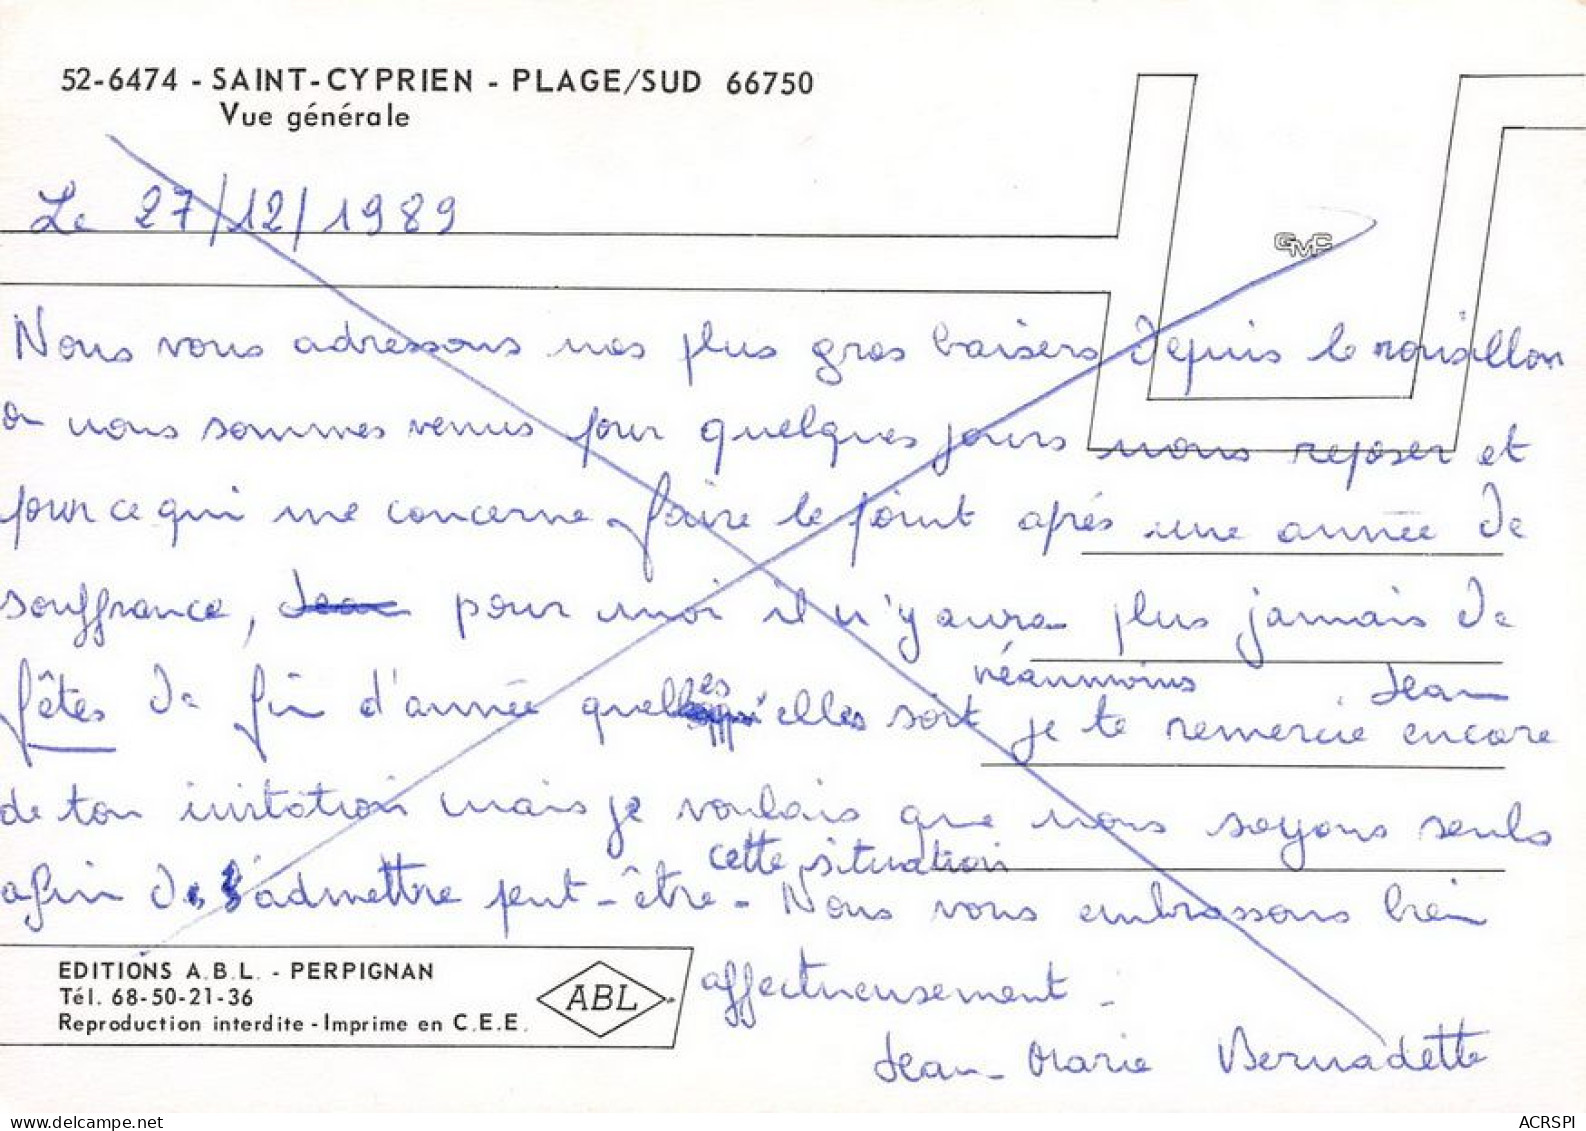 52-6474 - SAINT-CYPRIEN - PLAGE/SUD 66750
Vue générale
Le 27/12/1989
GMC
Nous vous adressons nos plus gros baisers depuis le rousillon
où nous sommes venus pour quelques jours nous reposer et
pour ce qui me concerne faire le point après une année de
souffrance, Jean pour moi il n'y aura plus jamais de
fêtes de fin d'année quelles qu'elles soit néanmoins Jean je te remercie encore
de ton invitation mais je voulais que nous soyons seuls
afin de s'admettre peut-être cette situation - Nous vous embrassons bien
affectueusement -
Jean-Marie Bernadette
EDITIONS A.B.L. - PERPIGNAN
Tél. 68-50-21-36
Reproduction interdite - Imprime en C.E.E.
ABL
delcampe.net
ACRSPI